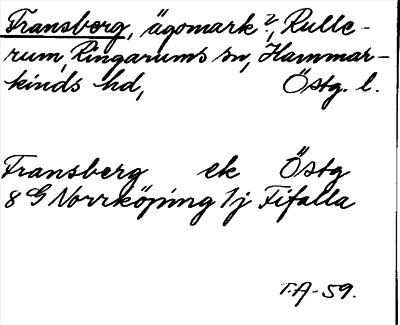 Fransberg, ägomark?, Rulle-
rum, Ringarums sn, Hammar-
kinds hd, Östg. l.
Fransberg ek Östg
8 G Norrköping 1j Fifalla
T.A-59.